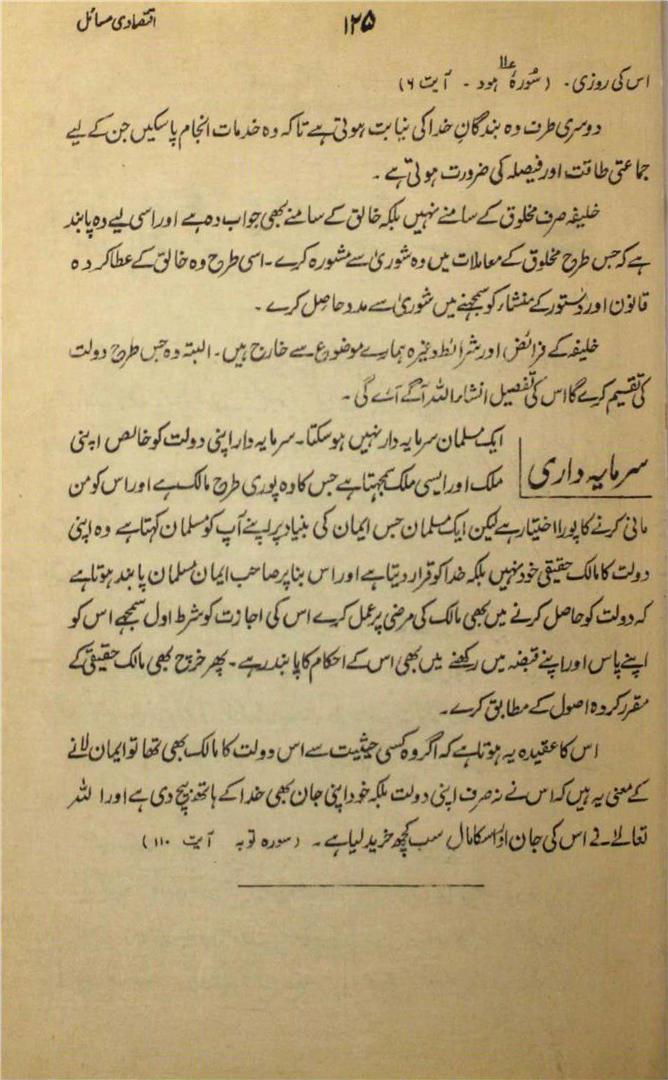 ۱۲۵
اقتصادی مسائل
اس کی روزی۔ (سُورۂ ۱۱؏ ہود ۔ آیت ۶)
دوسری طرف وہ بندگانِ خدا کی نیابت ہوتی ہے تاکہ وہ خدمات انجام پاسکیں جن کے لیے
جماعتی طاقت اور فیصلہ کی ضرورت ہوتی ہے ۔
خلیفہ صرف مخلوق کے سامنے نہیں بلکہ خالق کے سامنے بھی جواب دہ ہے اور اسی لیے وہ پابند
ہے کہ جس طرح مخلوق کے معاملات میں وہ شوریٰ سے مشورہ کرے۔ اسی طرح وہ خالق کے عطا کردہ
قانون اور دستور کے منشاء کو سمجھنے میں شوریٰ سے مدد حاصل کرے ۔
خلیفہ کے فرائض اور شرائط وغیرہ ہمارے موضوع سے خارج ہیں۔ البتہ وہ جس طرح دولت
کی تقسیم کرے گا اس کی تفصیل انشاء اللہ آگے آئے گی ۔
سرمایہ داری
ایک مسلمان سرمایہ دار نہیں ہو سکتا۔ سرمایہ دار اپنی دولت کو خالص اپنی
ملک اور ایسی ملک سمجھتا ہے جس کا وہ پوری طرح مالک ہے اور اس کو من
مانی کرنے کا پورا اختیار ہے لیکن ایک مسلمان جس ایمان کی بنیاد پر اپنے آپ کو مسلمان کہتا ہے وہ اپنی
دولت کا مالک حقیقی خود نہیں بلکہ خدا کو قرار دیتا ہے اور اس بنا پر صاحب ایمان مسلمان پابند ہوتا ہے
کہ دولت کو حاصل کرنے میں بھی مالک کی مرضی پر عمل کرے اس کی اجازت کو شرط اول سمجھے اس کو
اپنے پاس اور اپنے قبضہ میں رکھنے میں بھی اس کے احکام کا پابند رہے۔ پھر خرچ بھی مالک حقیقی کے
مقرر کردہ اصول کے مطابق کرے۔
اس کا عقیدہ یہ ہوتا ہے کہ اگر وہ کسی حیثیت سے اس دولت کا مالک بھی تھا تو ایمان لانے
کے معنی یہ ہیں کہ اس نے نہ صرف اپنی دولت بلکہ خود اپنی جان بھی خدا کے ہاتھ بیچ دی ہے اور اللہ
تعالٰے نے اس کی جان اور اس کا مال سب کچھ خرید لیا ہے ۔ (سورہ توبہ آیت ۱۱۰)